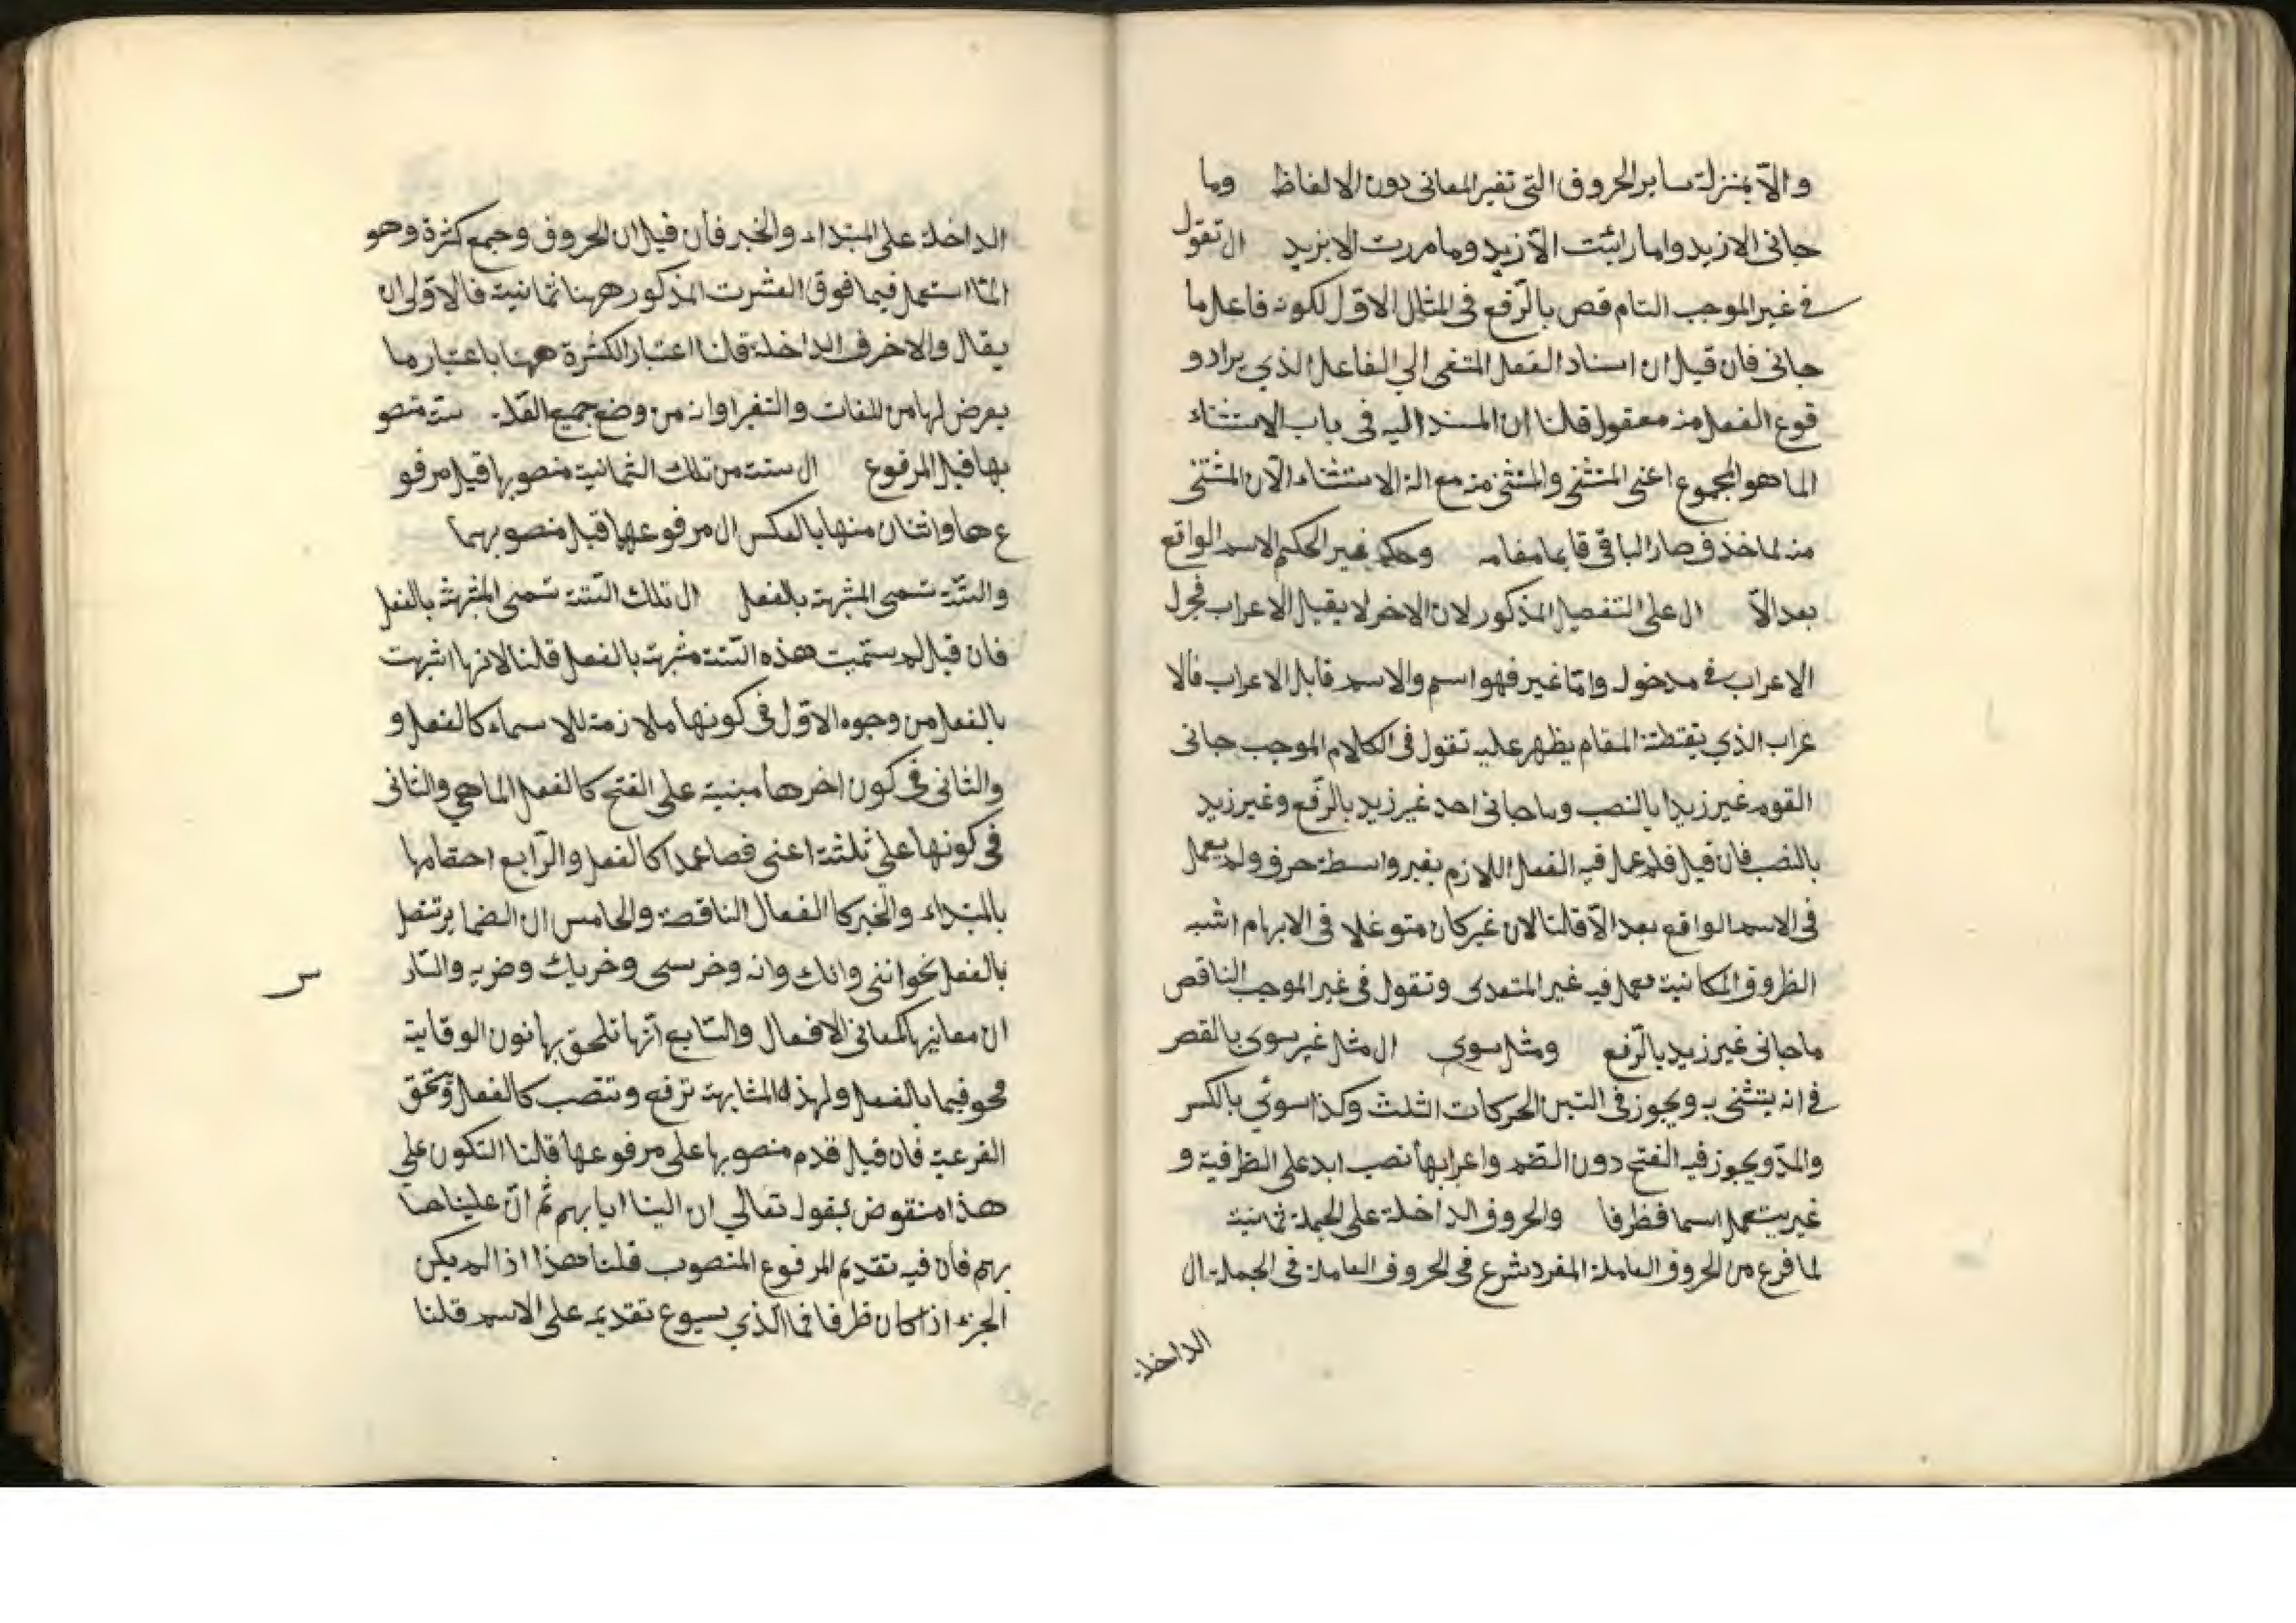 والّا بمنزلة ساير الحروف التى تغير المعانى دون الالفاظ وما
جانى الا زيد واما رائيت الّا زيد وما مررت الا بزيد ال تقول
فى غير الموجب التام قص بالرّفع فى المثال الاوّل لكونه فاعل ما
جانى فان قيل ان اسناد الفعل المنفى الي الفاعل الذي يراد و
قوع الفعل منه معقول قلنا ان المسند اليه فى باب الاستثناء
الما هو المجموع اعنى المتثنى والمتثنى منه مع الة الاستثناء الّا ان المتثنى
منه لما خذف صار الباقى قايما مقامه وحكم غير الحكم الاسم الواقع
بعد الّا ال على التفصيل المذكور لان الاخر لا يقبل الاعراب فجرل
الاعراب فى مدخول وامّا غير فهو اسم والاسم قابل الاعراب فالا
عراب الذي يقتطته المقام يظهر عليه تقول فى الكلام الموجب جانى
القوم غير زيدا بالنصب وما جانى احد غير زيد بالرّفع وغير زيد
بالنصب فان قيل فلم عمل فيه الفعل اللازم بغير واسطة حرف ولم يعمل
فى الاسم الواقع بعد الّا قلنا لان غير كان متوغلا فى الابهام اشبه
الظروف المكانية فعمل فيه غير المتعدى وتقول فى غير الموجب الناقص
ما جانى غير زيد بالرّفع ومثل سوى ال مثل غير سوى بالقصر
فى انه يتثنى به ويجوز فى التين الحركات الثلث وكذا سوئى بالكسر
والمدّ ويجوز فيه الفتح دون الضّم واعرابها نصب ابد على الظرفية و
غير يستعمل اسما فظرفا والحروف الداخلة على الجملة ثمانية
لما فرع من الحروف العاملة المفرد شرع فى الحروف العاملة فى الجملة ال
الداخلة
الداخلة على المبتداء والخبر فان قيل ان الحروف وجمع كثرة وهو
المّا استعمل فيما فوق العشرت المذكور ههنا ثمانية فالاوّلى ان
يقال والاخرف الداخلة قلنا اعتبار الكثرة ههنا باعتبار ما
يعرض لها من اللغات والتغيراو انه من وضع جميع القلة ستة منصو
بها قبل المرفوع ال ستة من تلك الثمانية منصوبها قبل مرفو
ع ها واثنان منها بالعكس ال مرفوعها قبل منصوبهما
والستّة تسمى المشبهة بالفعل ال تلك الستّة تسمى المشبهة بالفعل
فان قيل لم ستميت هذه الستّة مشبهة بالفعل قلنا لانها اشبهت
بالفعل من وجوه الاوّل فى كونها ملازمة للاسماء كالفعل و
والثانى فى كون اخرها مبنية على الفتح كالفعل الماضي والثانى
فى كونها على ثلثة اعنى فصاعدا كالفعل والرّابع احقامها
بالمبتداء والخبر كا الفعال الناقصة والخامس ان الضماير تتصل
بالفعل نحو اننى وانك وانه وخرسى وخربك وضربه والسّا
س
ان معانيها كمعانى الافعال والسّابع انّها تلحق بها نون الوقاية
محو فيما بالفعل ولهذه المشابهة ترفع وتنصب كالفعل وتحقق
الفرعية فان قيل قدم منصوبها على مرفوعها قلنا التكون على
هذا منقوض بقوله تعالي ان الينا ايابهم ثم انّ علينا حسا
بهم فان فيه تقديم المرفوع المنصوب قلنا هذا اذ لم يكن
الجزء اذا كان ظرفا فما الذي يسوع تقديمه على الاسم قلنا